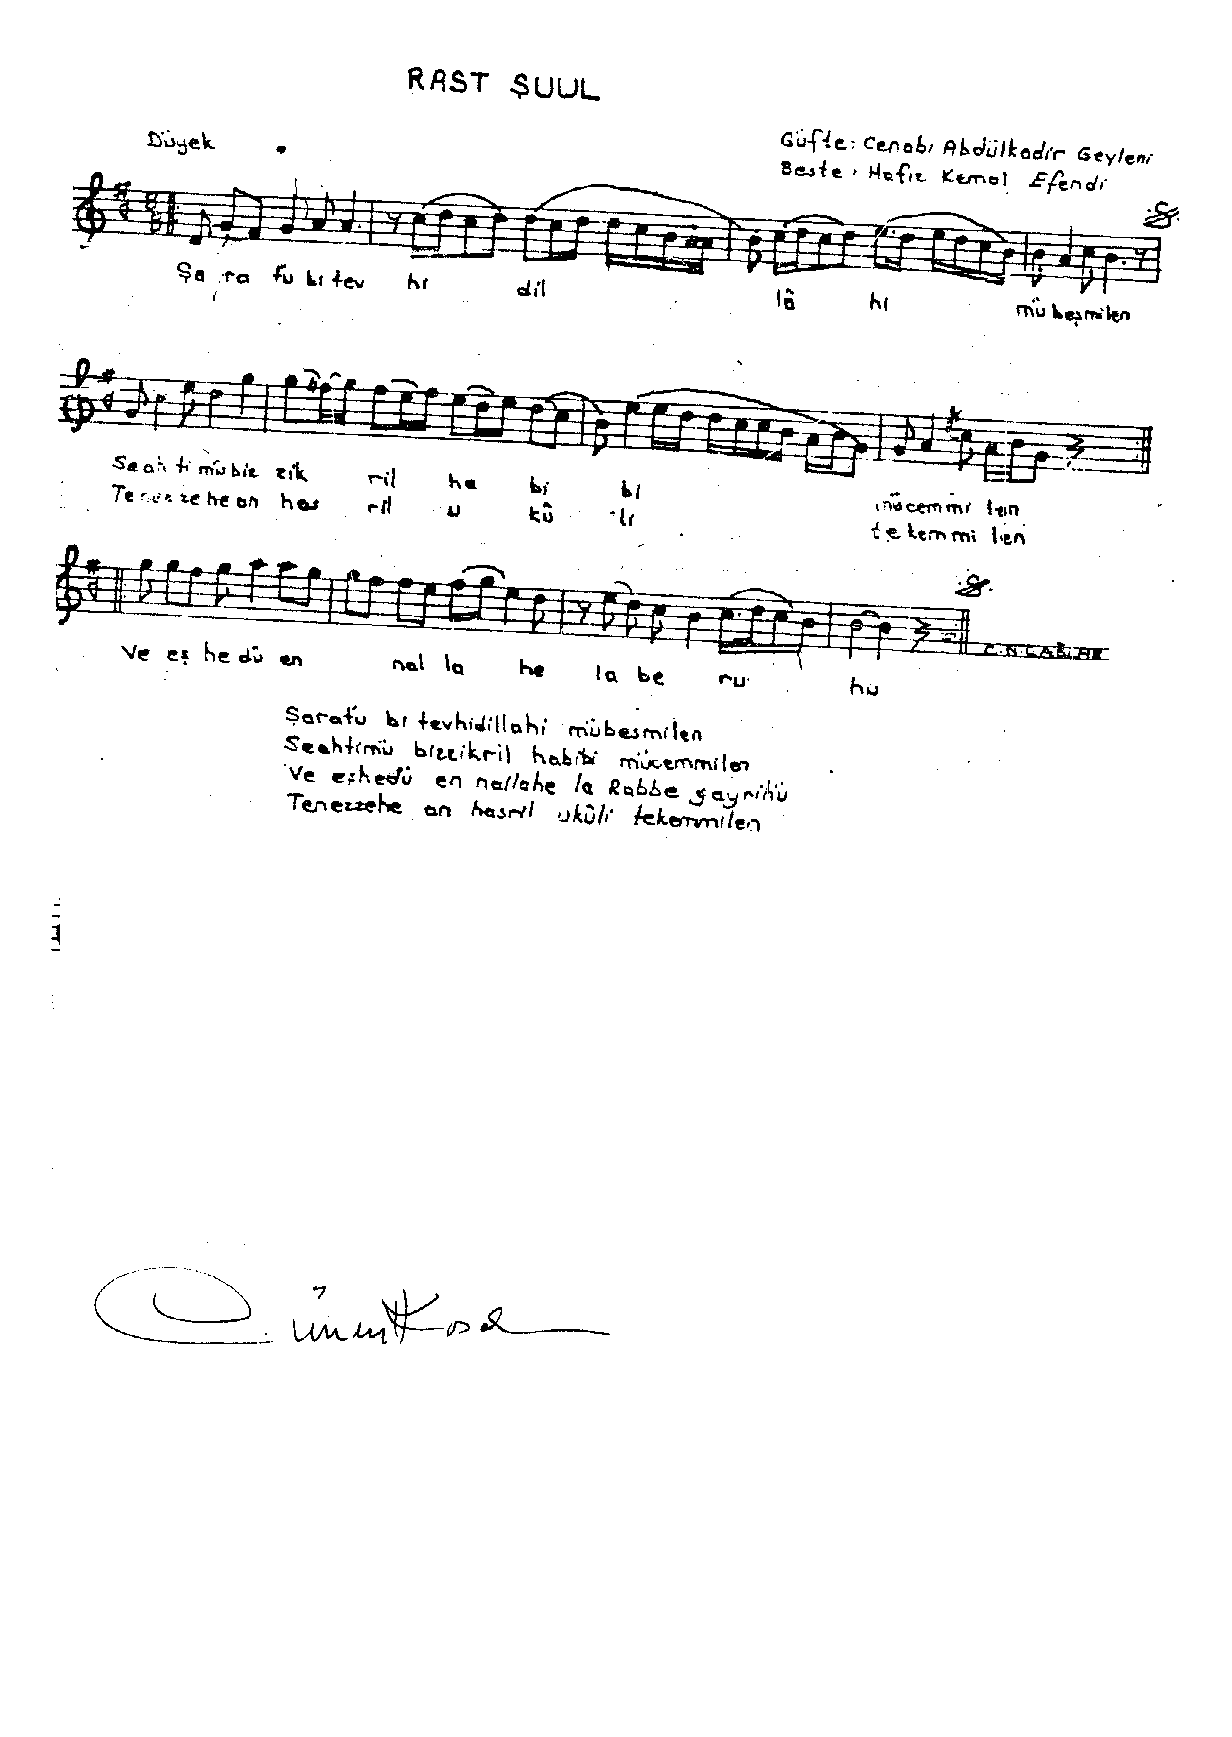 RAST ŞUUL
Düyek
Güfte: Cenabı Abdülkadir Geyleni
Beste: Hafız Kemal Efendi
Şa ra fu bi tev hi dil lâ hi mübeşmilen
Seah ti mü biz zik ril ha bi bi mücemmi len
Tenezzehe an has ril u kû li tekemmi len
Ve eş hedü en nal la he la be ru hu
Şarafu bi tevhidillahi mübesmilen
Seahtimü bizzikril habibi mücemmilen
Ve eşhedü en nallahe la Rabbe gayrihü
Tenezzehe an hasril ukûli tekemmilen